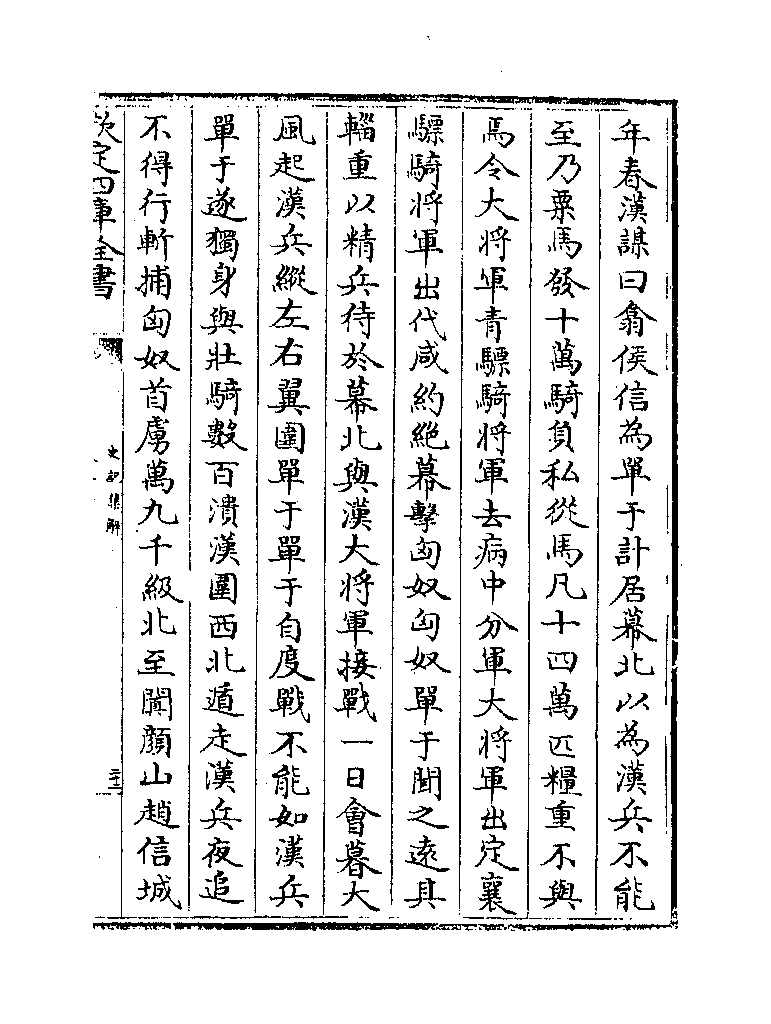 年春漢謀曰翕侯信為單于計居幕北以為漢兵不能
至乃粟馬發十萬騎負私從馬凡十四萬匹糧重不與
焉令大將軍青驃騎將軍去病中分軍大將軍出定襄
驃騎將軍出代咸約絶幕擊匈奴匈奴單于聞之遠其
輜重以精兵待於幕北與漢大將軍接戰一日會暮大
風起漢兵縱左右翼圍單于單于自度戰不能如漢兵
單于遂獨身與壯騎數百潰漢圍西北遁走漢兵夜追
不得行斬捕匈奴首虜萬九千級北至闐顔山趙信城
欽定四庫全書
史記集解